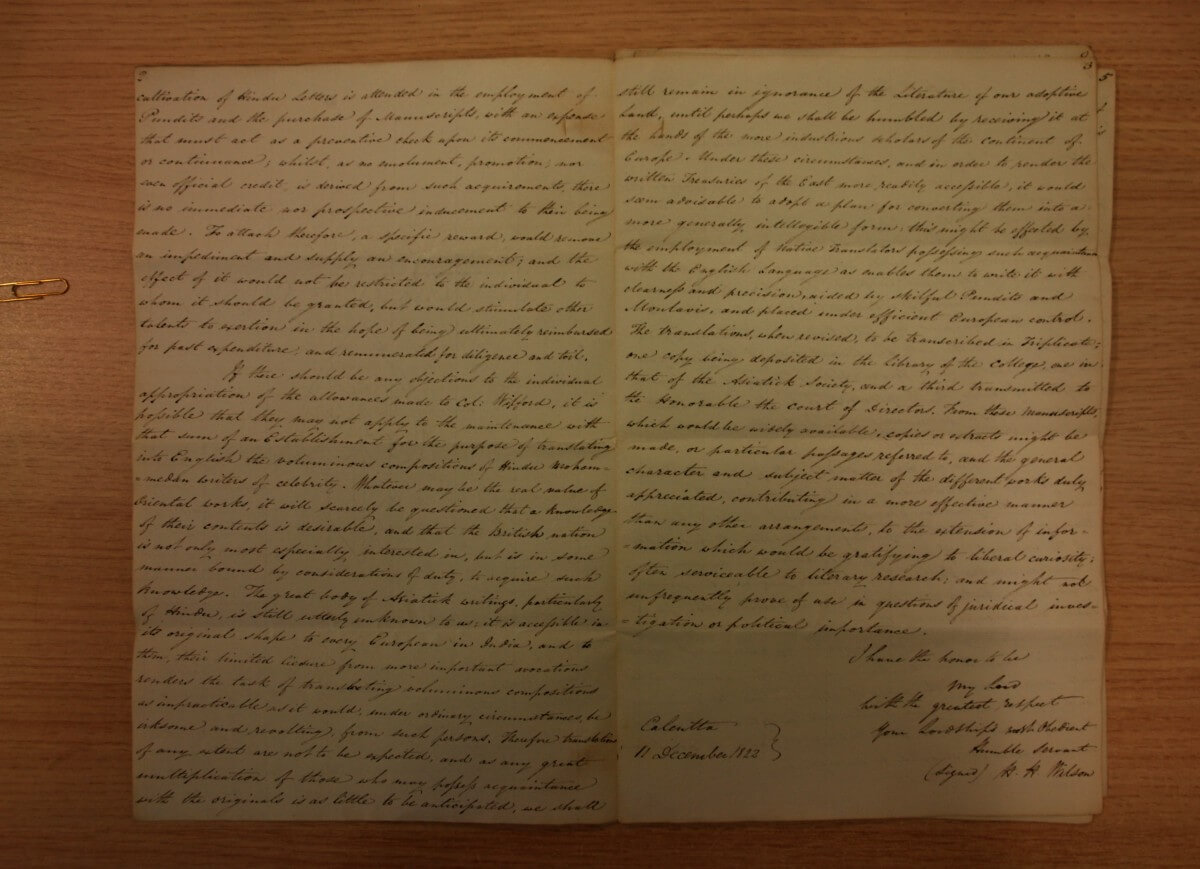 2
cultivation of Hindu Letters is attended in the employment of
Pundits and the purchase of Manuscripts, with an expense
that must act as a preventive check upon its commencement
or continuance; whilst, as no emolument, promotion, nor
even official credit, is derived from such acquirements, there
is no immediate nor prospective inducement to their being
made. To attach therefore, a specific reward, would remove
an impediment and supply an encouragement; and the
effect of it would not be restricted to the individual to
whom it should be granted, but would stimulate other
talents to exertion in the hope of being ultimately reimbursed
for past expenditure, and remunerated for diligence and toil.
If there should be any objections to the individual
appropriation of the allowances made to Col: Wilford, it is
possible that they may not apply to the maintenance with
that sum of an Establishment for the purpose of translating
into English the voluminous compositions of Hindu Mohom-
=medan writers of celebrity. Whatever may be the real value of
Oriental works, it will scarcely be questioned that a knowledge
of their contents is desirable, and that the British nation
is not only most especially interested in, but is in some
manner bound by considerations of duty, to acquire such
knowledge. The great body of Asiatick writings, particularly
of Hindu, is still utterly unknown to us; it is accessible in
its original shape to every European in India, and to
them, their limited liesure from more important avocations
renders the task of translating voluminous compositions
as impracticable as it would, under ordinary circumstances, be
irksome and revolting, from such persons. Therefore translations
of any extent are not to be expected, and as any great
multiplication of those who may possess acquaintance
with the originals is as little to be anticipated, we shall
3
5
still remain in ignorance of the Literature of our adoptive
Land, until perhaps we shall be humbled by receiving it at
the hands of the more industrious scholars of the continent of
Europe. Under these circumstances, and in order to render the
written Treasuries of the East more readily accessible, it would
seem advisable to adopt a plan for converting them into a
more generally intellegible form: this might be effected by
the employment of Native Translators possessing such acquaintance
with the English Language as enables them to write it with
clearness and precision, aided by skilful Pundits and
Moulavis, and placed under efficient European control.
The translations, when revised, to be transcribed in Triplicate;
one copy being deposited in the Library of the College, one in
that of the Asiatick Society, and a third transmitted to
the Honorable the court of Directors. From those manuscripts,
which would be widely available, copies or extracts might be
made, or particular passages referred to, and the general
character and subject matter of the different works duly
appreciated, contributing in a more effective manner
than any other arrangements, to the extension of infor-
=mation which would be gratifying to liberal curiosity;
often serviceable to literary research; and might not
unfrequently prove of use in questions of juridical inves-
=tigation or political importance.
I have the honor to be
My Lord
With the greatest respect
Your Lordship's most Obedient
Humble Servant
(Signed) H. H. Wilson
Calcutta
11 December 1822